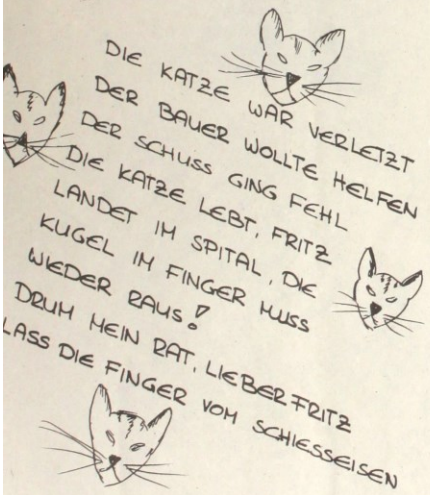 DIE KATZE WAR VERLETZT
DER BAUER WOLLTE HELFEN
DER SCHUSS GING FEHL
DIE KATZE LEBT, FRITZ
LANDET IM SPITAL, DIE
KUGEL IM FINGER MUSS
WIEDER RAUS!
DRUM MEIN RAT, LIEBER FRITZ
LASS DIE FINGER VOM SCHIESSEISEN